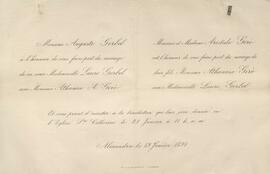 Monsieur Auguste Gerbel
a l'honneur de vous faire part du mariage
de sa nièce Mademoiselle Laure Gerbel
avec Monsieur Athanase A. Geré
Monsieur et Madame Aristide Geré
ont l'honneur de vous faire part du mariage de
leur fils Monsieur Athanase Geré
avec Mademoiselle Laure Gerbel
Et vous prient d'assister à la bénédiction qui leur sera donnée en
l'Eglise Ste Catherine le 28 Janvier à 11 h. a. m.
Alexandrie le 18 Janvier 1894